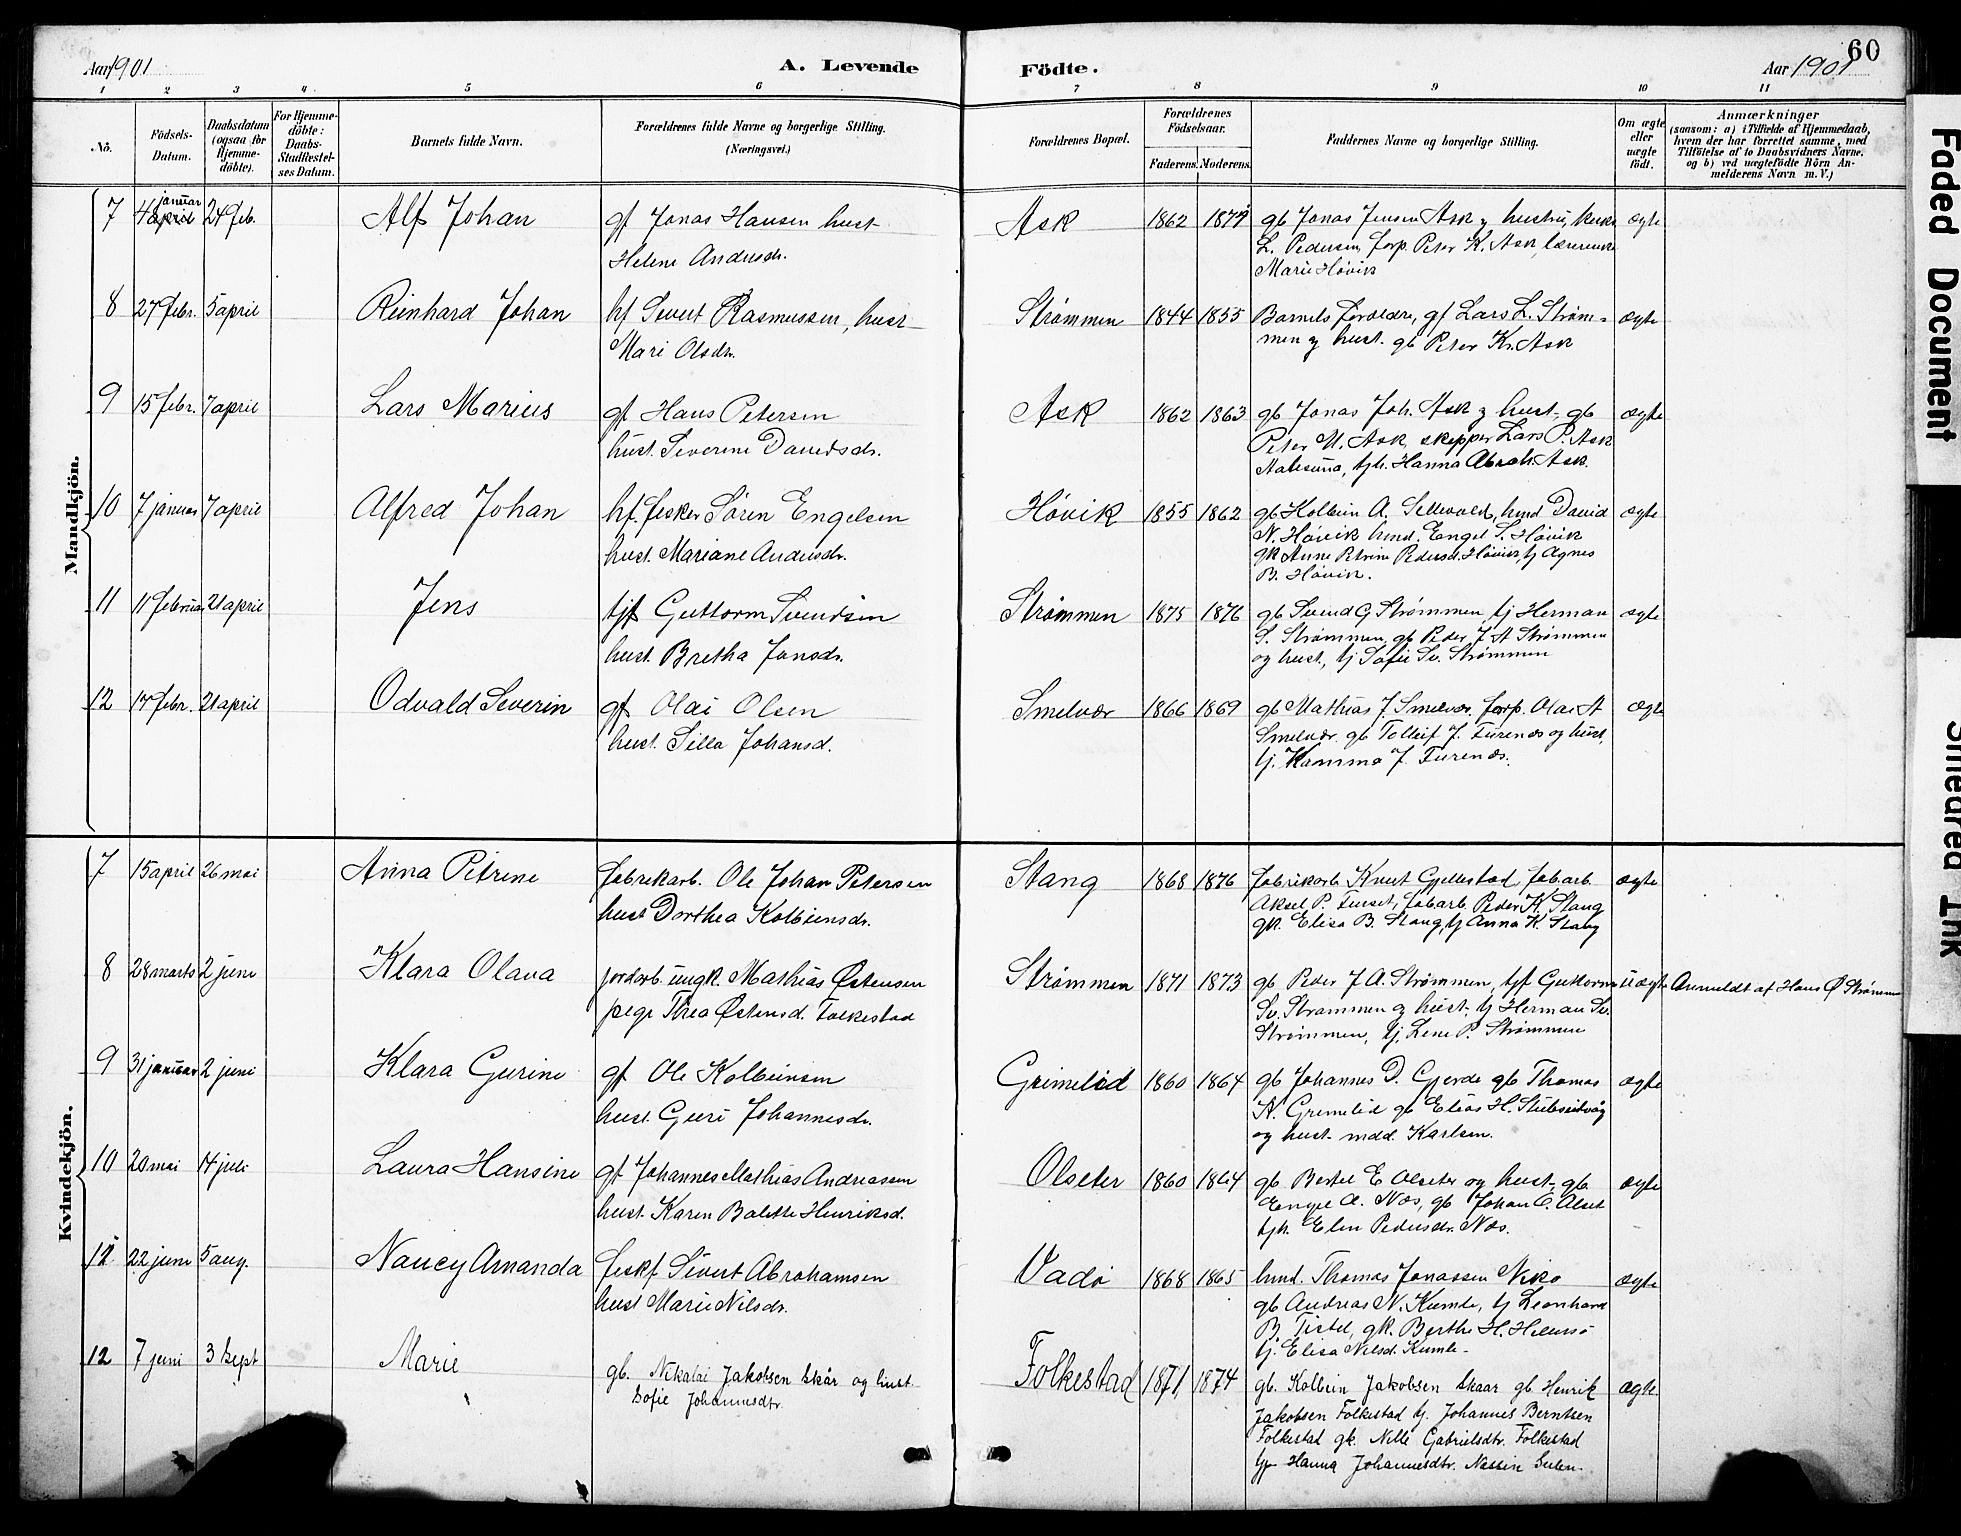 60
Aar 1901
A. Levende
Födte.
Aar 1901
1 2 3 4 5 6 7 8 9 10 11
Nö.
Födsels-
Datum.
Daabsdatum
(ogsaa for
Hjemme-
döbte).
For Hjemme-
döbte:
Daabs-
Stadfestel-
ses Datum.
Barnets fulde Navn.
Forældrenes fulde Navne og borgerlige Stilling.
(Næringsvei.)
Forældrenes Bopæl.
Forældrenes
Födselsaar.
Faderens. Moderens.
Faddernes Navne og borgerlige Stilling.
Om ægte
eller
uægte
födt.
Anmærkninger
(saasom: a) i Tilfælde af Hjemmedaab,
hvem der har forrettet samme, med
Tilföielse af to Daabsvidners Navne,
og b) ved uægtefödte Börn An-
melderens Navn m. V.)
Mandkjön.
januar
7 4 april 24 feb. Alf Johan gf Jonas Hansen hust Ask 1862 gb Jonas Jensen Ask og hustru, ægte
Helene Andersdr. L. Pedersen, forp. Peter K. Ask,
Marie Høvik
8 27 febr. 5 april Reinhard Johan hf Sivert Rasmussen, hust Strømmen 1844 1855 Barnets forældre, gf Lars L. Strøm- ægte
Mari Olsdr. men og hust. gb Peter Kr. Ask
9 15 febr. 7 april Lars Marius gf Hans Petersen Ask 1862 1863 gb Jonas Joh. Ask og hust. gb ægte
hust. Severine Davidsdr. Peter M. Ask, skipper Lars P. Ask
tjh. Hanna Abrah. Ask.
10 7 januar 7 april Alfred Johan hf. fisker Søren Engelsen Høvik 1855 1862 gb Kolbein A. Sellevold, hmd David ægte
hust Mariane Andersdr. N. Høvik hmd. Engel S. Høvik
gk Anne Petrine Pedersd. Høvik, tj Agnes
B. Høvik.
11 11 februar 21 april Jens tjf Guttorm Svendsen Strømmen 1875 1876 gb Svend G Strømmen tj Herman ægte
hust. Bretha Jonsdr. S. Strømmen, gb Peder J A Strømmen
og hust., tj Sofie Sv. Strømmen
12 17 febr. 21 april Odvald Severin gf Olai Olsen Smelvær 1866 1869 gb Mathias J. Smelvær forp. Olai A ægte
hust. Silla Johansd. Smelvær. gb Tolleif J. Furenæs og hust,
tj. Kamma J. Furenæs.
Kvindekjön.
7 15 april 26 mai Anna Petrine fabrikarb. Ole Johan Petersen Stang 1868 1876 fabrikarb Knut Gjellestad, fabarb. ægte
hust Dorthea Kolbeinsdr. Aksel P. Furset, fabarb. Peder K. Stang
gk. Elisa B. Stang, tj Anna K. Stang
8 28 marts 2 juni Klara Olava jordarb. ungk. Mathias Østensen Strømmen 1871 1873 gb Peder J A. Strømmen, tjf Guttorm uægte Anmeldt af Hans Ø Strømmen
pige Thea Østensd. Folkestad Sv. Strømmen og hust. tj Herman Sv.
Strømmen, tj. Lene P. Strømmen
9 31 januar 2 juni Klara Gurine gf Ole Kolbeinsen Grimelid 1860 1864 gb Johannes D. Gjerde gb Thomas ægte
hust. Guri Johannesdr. A. Grimelid gb Elias H. Stubseidvåg
og hust. mdd. Karlsen.
10 20 mai 14 juli Laura Hansine gf Johannes Mathias Andreassen Olseter 1860 1864 gb Bertel E Olseter og hust. gb. ægte
hust. Karen Balette Henriksd. Engel A. Næs, gb Johan O. Alset
tjh. Elen Pedersdr. Næs.
11 22 juni 5 aug. Nancy Amanda fiskf Sivert Abrahamsen Vadö 1868 1865 hmd. Thomas Jonassen Niko ægte
hust Marie Nilsdr. gb Andreas N. Kumle, tj Leonhard
B. Tistel, gk. Berthe H. Hillersö
tj. Elisa Nilsd. Kumle.
12 7 juni 3 Sept Marie gb. Nikolai Jakobsen Skår og hust Folkestad 1871 1874 gb. Kolbein Jakobsen Skaar gb Henrik ægte.
Sofie Johannesdtr. Jakobsen Folkestad tj. Johannes Berntsen
Folkestad gk. Nille Gabrielsdtr. Folkestad
tjp Hanna Johannesdtr. Nessin Sulen.
Faded Document
Smeared Ink